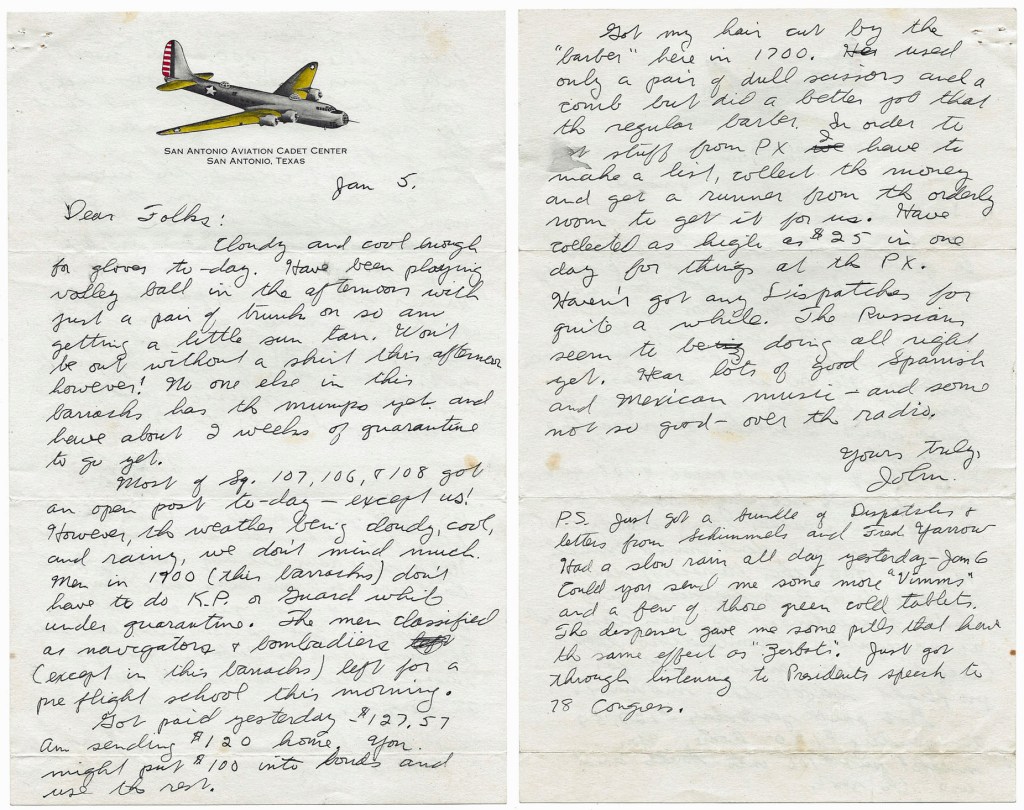 SAN ANTONIO AVIATION CADET CENTER
SAN ANTONIO, TEXAS
Jan 5.
Dear Folks:
Cloudy and cool enough
for gloves to-day. Have been playing
volley ball in the afternoons with
just a pair of trunks on so am
getting a little sun tan. Won't
be out without a shirt this afternoon
however! No one else in this
barracks has the mumps yet and
have about 2 weeks of quarantine
to go yet.
Most of Sq. 107, 106, & 108 got
an open post to-day - except us!
However, the weather being cloudy, cool,
and rainy, we don't mind much.
Men in 1700 (this barracks) don't
have to do K.P. or Guard while
under quarantine. The men classified
as navigators & bombadiers
(except in this barracks) left for a
pre flight school this morning.
Got paid yesterday - $127.57
am sending $120 home. You
might put $100 into bonds and
use the rest.
Got my hair cut by the
"barber" here in 1700. He used
only a pair of dull scissors and a
comb but did a better job that
the regular barber. In order to
stuff from PX I have to
make a list, collect the money
and get a runner from the orderly
room to get it for us. Have
collected as high as $25 in one
day for things at the PX.
Haven't got any Dispatches for
quite a while. The Russians
seem to be doing all right
yet. Hear lots of good Spanish
and Mexican music - and some
not so good - over the radio.
Yours truly,
John.
P.S. Just got a bundle of Dispatches &
letters from Schimmels and Fred Yarrow
Had a slow rain all day yesterday - Jan 6
Could you send me some more "Vimms"
and a few of those green cold tablets.
The dispenser gave me some pills that have
the same effect as "Zerbats". Just got
through listening to Presidents speech to
78 Congress.